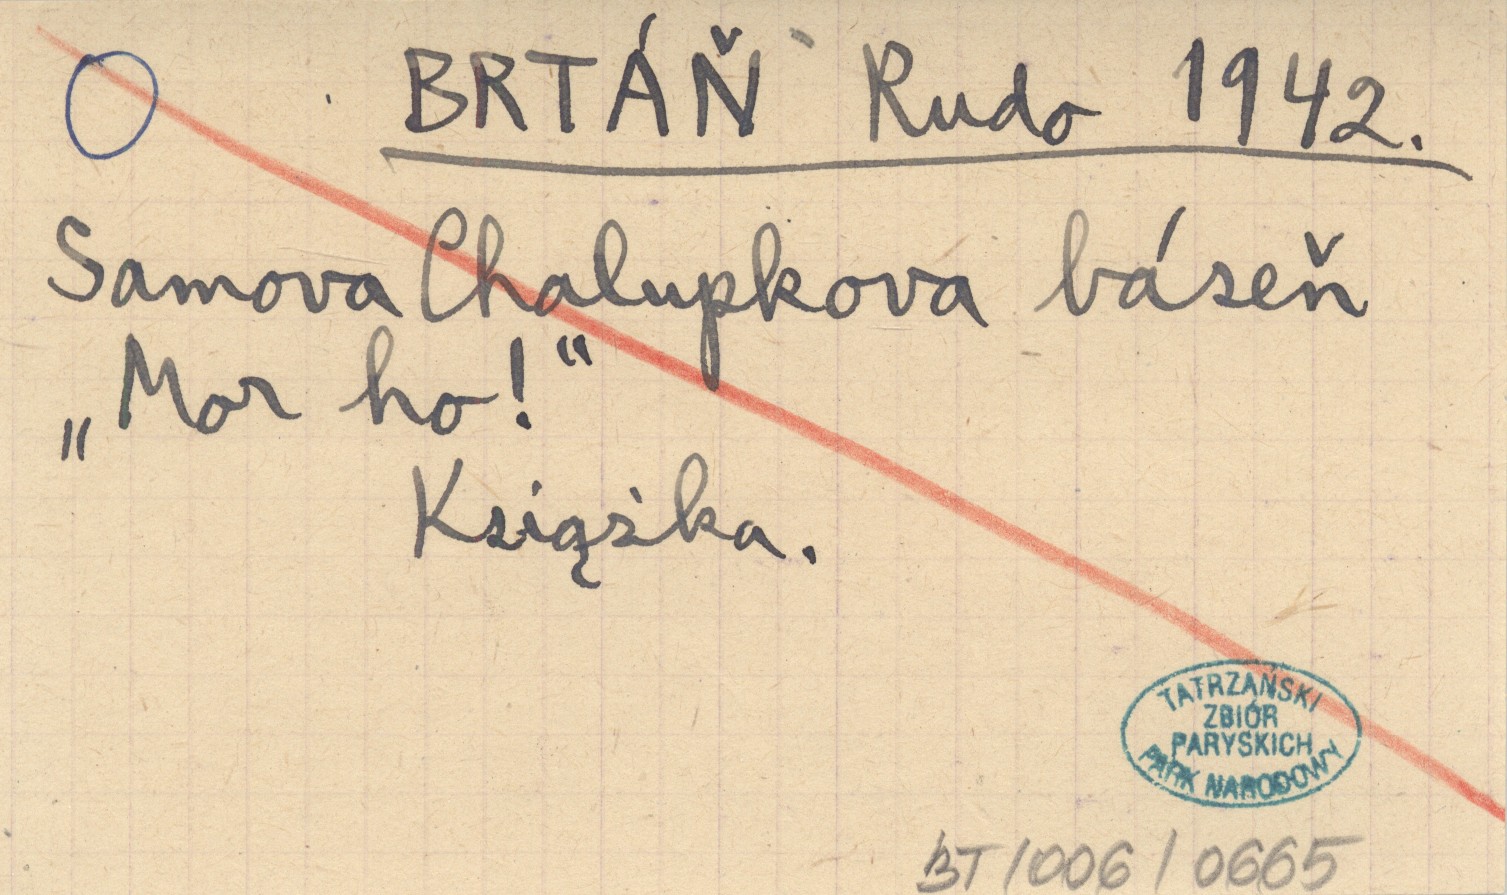 BRTÁŇ Rudo 1942.
Samova Chalupkova báseň
„Mor ho!“
Książka.
TATRZAŃSKI
ZBIÓR
PARYSKICH
PARK NARODOWY
BT/006/0665